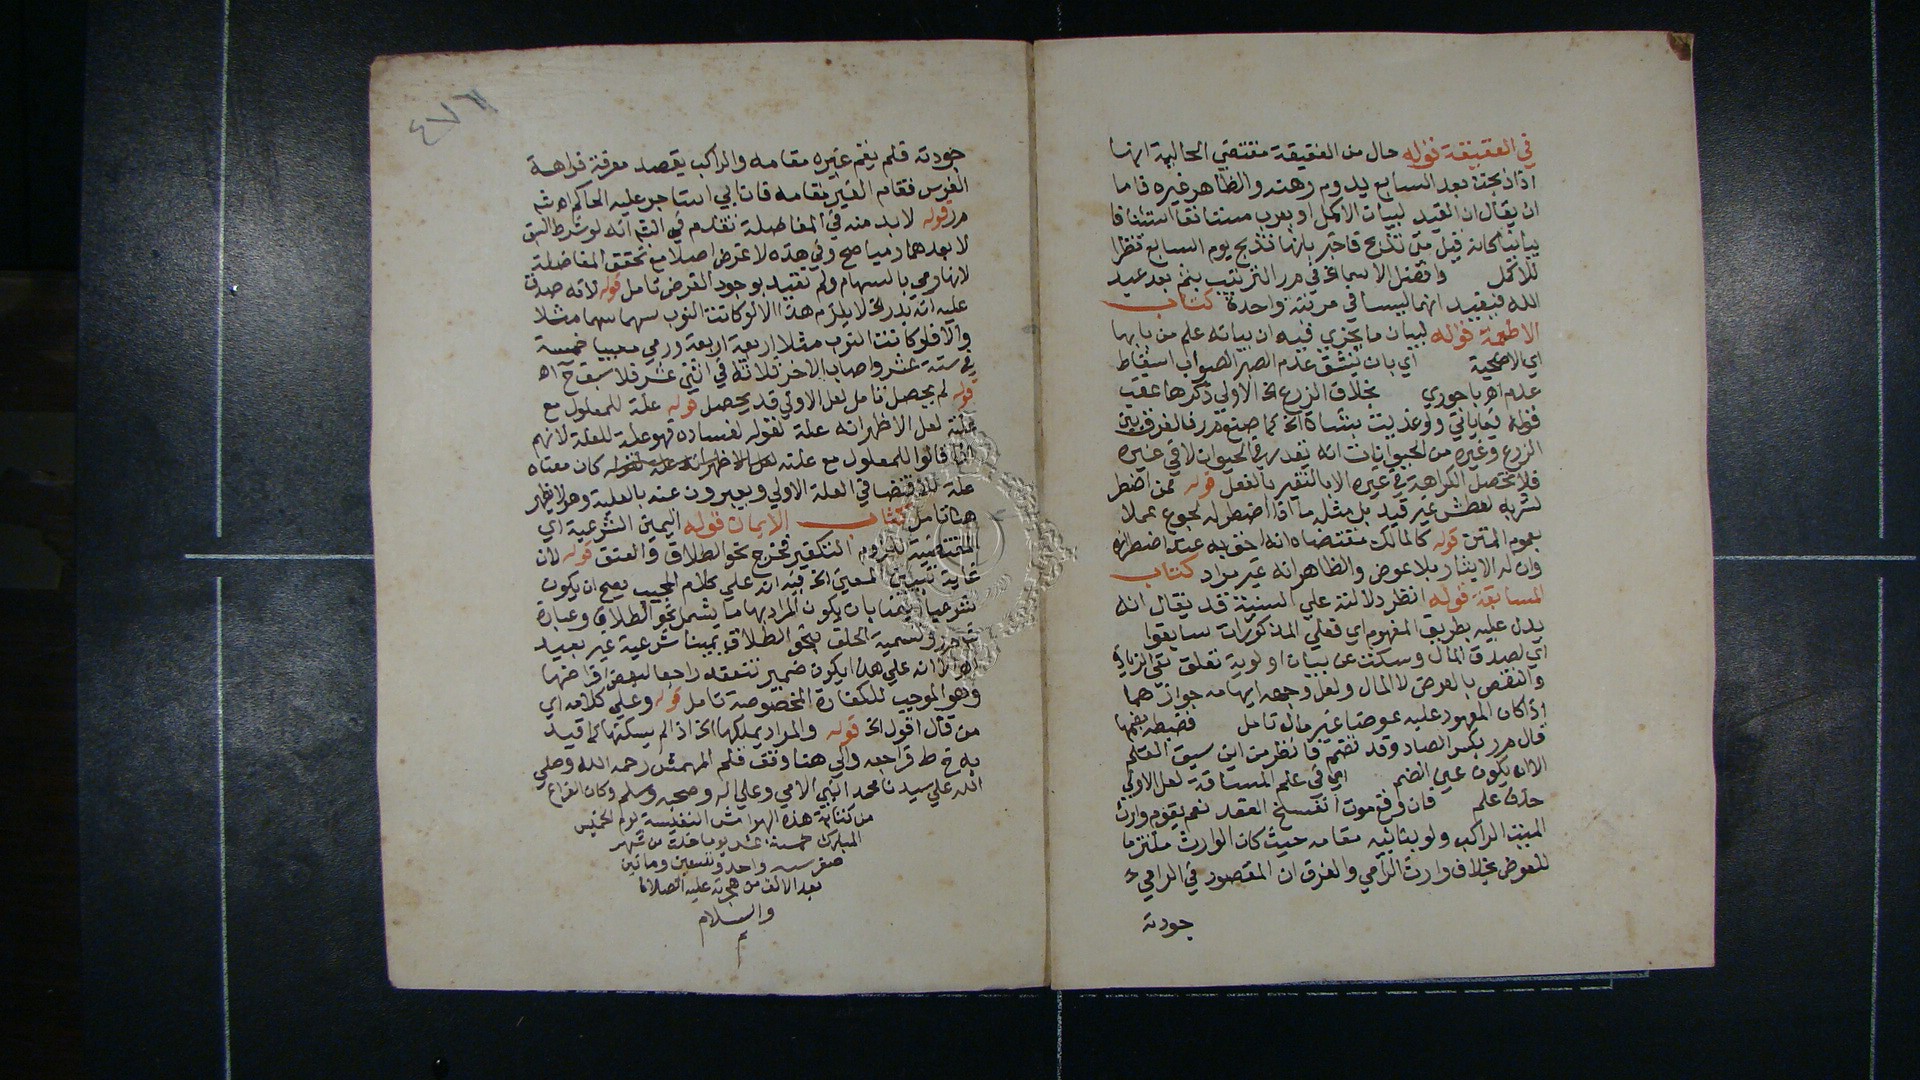 في العقيقة قوله حال من العقيقة مقتضي الحالية انها
اذا ذبحت بعد السابع يدوم رهنه والظاهر غيره فاما
ان يقال ان القيد لبيان الاكمل او يعرب مستانفا استئنافا
بيانيا كانه قيل متى تذبح فاجاب بانها تذبح يوم السابع نظرا
للاكمل وافضل الاسما الخ في مر الترتيب بثم بعد عبد
الله فيفيد انهما ليسا في مرتبة واحدة كتاب
الاطعمة قوله لبيان ما يجزي فيه ان بيانه علم من بابها
اي الاضحية اي بان يشق عدم الصبر الصواب اسقاط
عدم اهر باجوري بخلاف الزرع الخ الاولي ذكرها عقب
قوله وغذيت بشاة الخ كما صنع مر فالفرق بين
الزرع وغيره من الحيوانات انه يقدر في الحيوان لا في غيره
فلا تحصل الكراهة في غيره الا بالتغير بالفعل قوله فمن اضطر
لشربه لعطش غير قيد بل مثله ما اذا اضطر له لجوع عملا
بعموم المتن قوله كالمالك مقتضاه انه احق به عند اضطراره
وان له الايثار بلا عوض والظاهر انه غير مراد كتاب
المسابقة قوله انظر دلالته علي السنية قد يقال انه
يدل عليه بطريق المفهوم اي فعلي المذكورات سابقوا
اي لصدق المال وسكت عن بيان اولوية تعلق بقي الزيادة
والنقص بالعرض لا المال ولعل وجهه ايهامه جوازهما
اذا كان المعهود عليه عوضا غير مال تامل فضبطه بعضها
قال مر بكسر الصاد وقد تضم فانظر من اين سبق القلم
الا ان يكون عين الضم اي في علم المسافة لعل الاولي
حذف علم فان وقع موت انفسخ العقد نعم يقوم وارث
الميت الراكب ولو بنائبه مقامه حيث كان الوارث ملتزما
للعوض بخلاف وارث الرامي والفرق ان المقصود في الرامي
جودته
جودته فلم يقم غيره مقامه والراكب يقصد معرفة فراهة
الفرس فقام الغير مقامه فان ابي استاجر عليه الحاكم اه شم
مر قوله لا بد منه في المفاضلة تقدم في القم انه لو شرط السبق
لا بعدهما رميا صح وفي هذه لا غرض اصلا مع تحقق المفاضلة
لانها رمي بالسهام ولم تقيد بوجود الغرض تامل قوله لانه صدق
عليه انه بدر الخ لا يلزم هذا الا لو كانت النوب سهما سهما مثلا
والا فلو كانت النوب مثلا اربعة اربعة ورمي معيبا خمسة
في ستة عشر واصاب الاخر ثلاثة في اثني عشر فلا سبق ح اه
قوله لم يحصل تامل لعل الاولي قد يحصل قوله علة للمعلول مع
علته لعل الاظهر انه علة لقوله لفساده فهو علة للعلة لانهم
اذا قالوا للمعلول مع علته لعل الاظهر انه علة لقوله كان معناه
علة للاقتضا في العلة الاولي ويعبرون عنه بالعلية وهو لا يظهر
هنا تامل كتاب الايمان قوله اليمين الشرعية اي
المقتضية للزوم التكفير فخرج نحو الطلاق والعتق قوله لان
غاية تبيين المعني الخ فيه انه علي كلام المجيب يصح ان يكون
شرعيا ايضا بان يكون المراد بها ما يشمل نحو الطلاق وعبارة
مر وتسمية الحلف بنحو الطلاق يمينا شرعية غير بعيد
اه الا انه علي هذا يكون ضمير تنعقد راجعا لبعض افرادها
وهو الموجب للكفارة المخصوصة تامل قوله وعلي كلامه اي
من قال اقول الخ قوله والمراد يملكها الخ اذ لم يسكتها كما قيد
به خ ط فراجعه والي هنا وقف قلم المهمش رحمه الله وصلي
الله علي سيدنا محمد النبي الامي وعلي اله وصحبه وسلم وكان الفراغ
من كتابة هذه الهوامش النفيسة يوم الخميس
المبارك خمسة عشر يوما خلت من شهر
صفر سنة واحد وتسعين وماتين
بعد الالف من هجرته عليه الصلاة
والسلام
م
٤٧٦